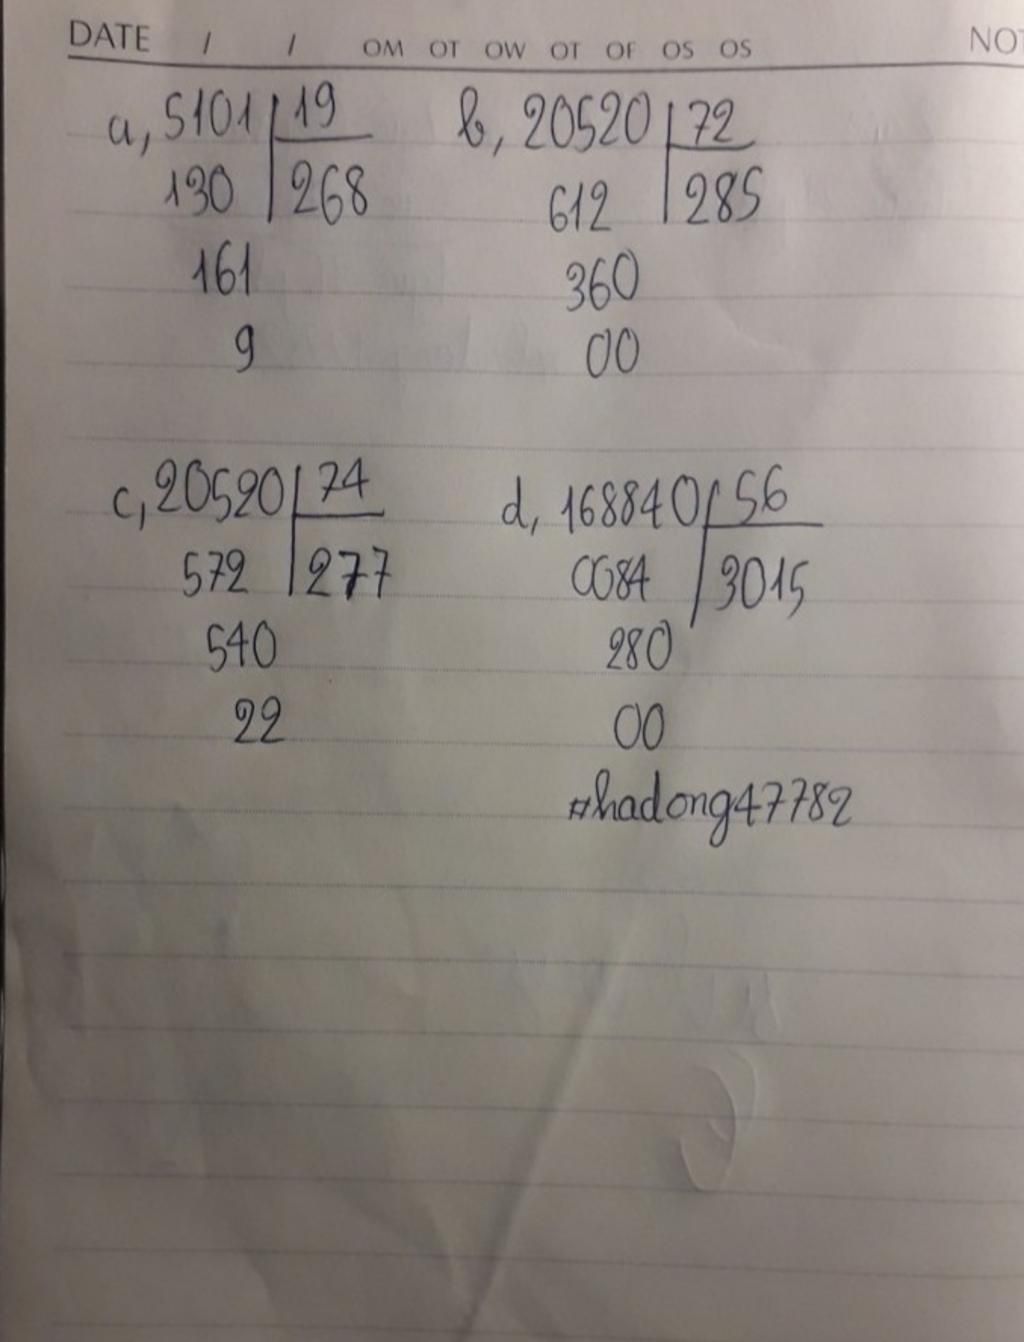 DATE / / OM OT OW OT OF OS OS NOT
a, 5101 19
130 268
161
9
b, 20520 72
612 285
360
00
c, 20520 74
572 277
540
22
d, 168840 56
0084 3015
280
00
#hadong47782